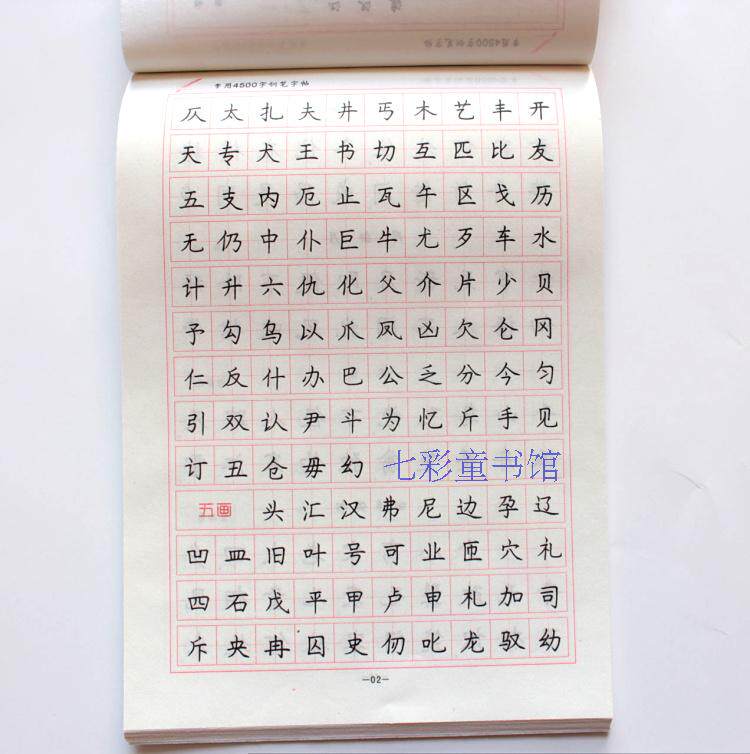 常用4500字钢笔字帖
仄太扎夫井丐木艺丰开
天专犬王书切互匹比友
五支内厄止瓦午区戈历
无仍中仆巨牛尤歹车水
计升六仇化父介片少贝
予勾乌以爪凤凶欠仑冈
仁反什办巴公乏分今匀
引双认尹斗为忆斤手见
订丑仓毋幻
七彩童书馆
五画 头汇汉弗尼边孕辽
凹皿旧叶号可业匝穴札
四石戊平甲卢申札加司
斥央冉囚史仞叱龙驭幼
—02—